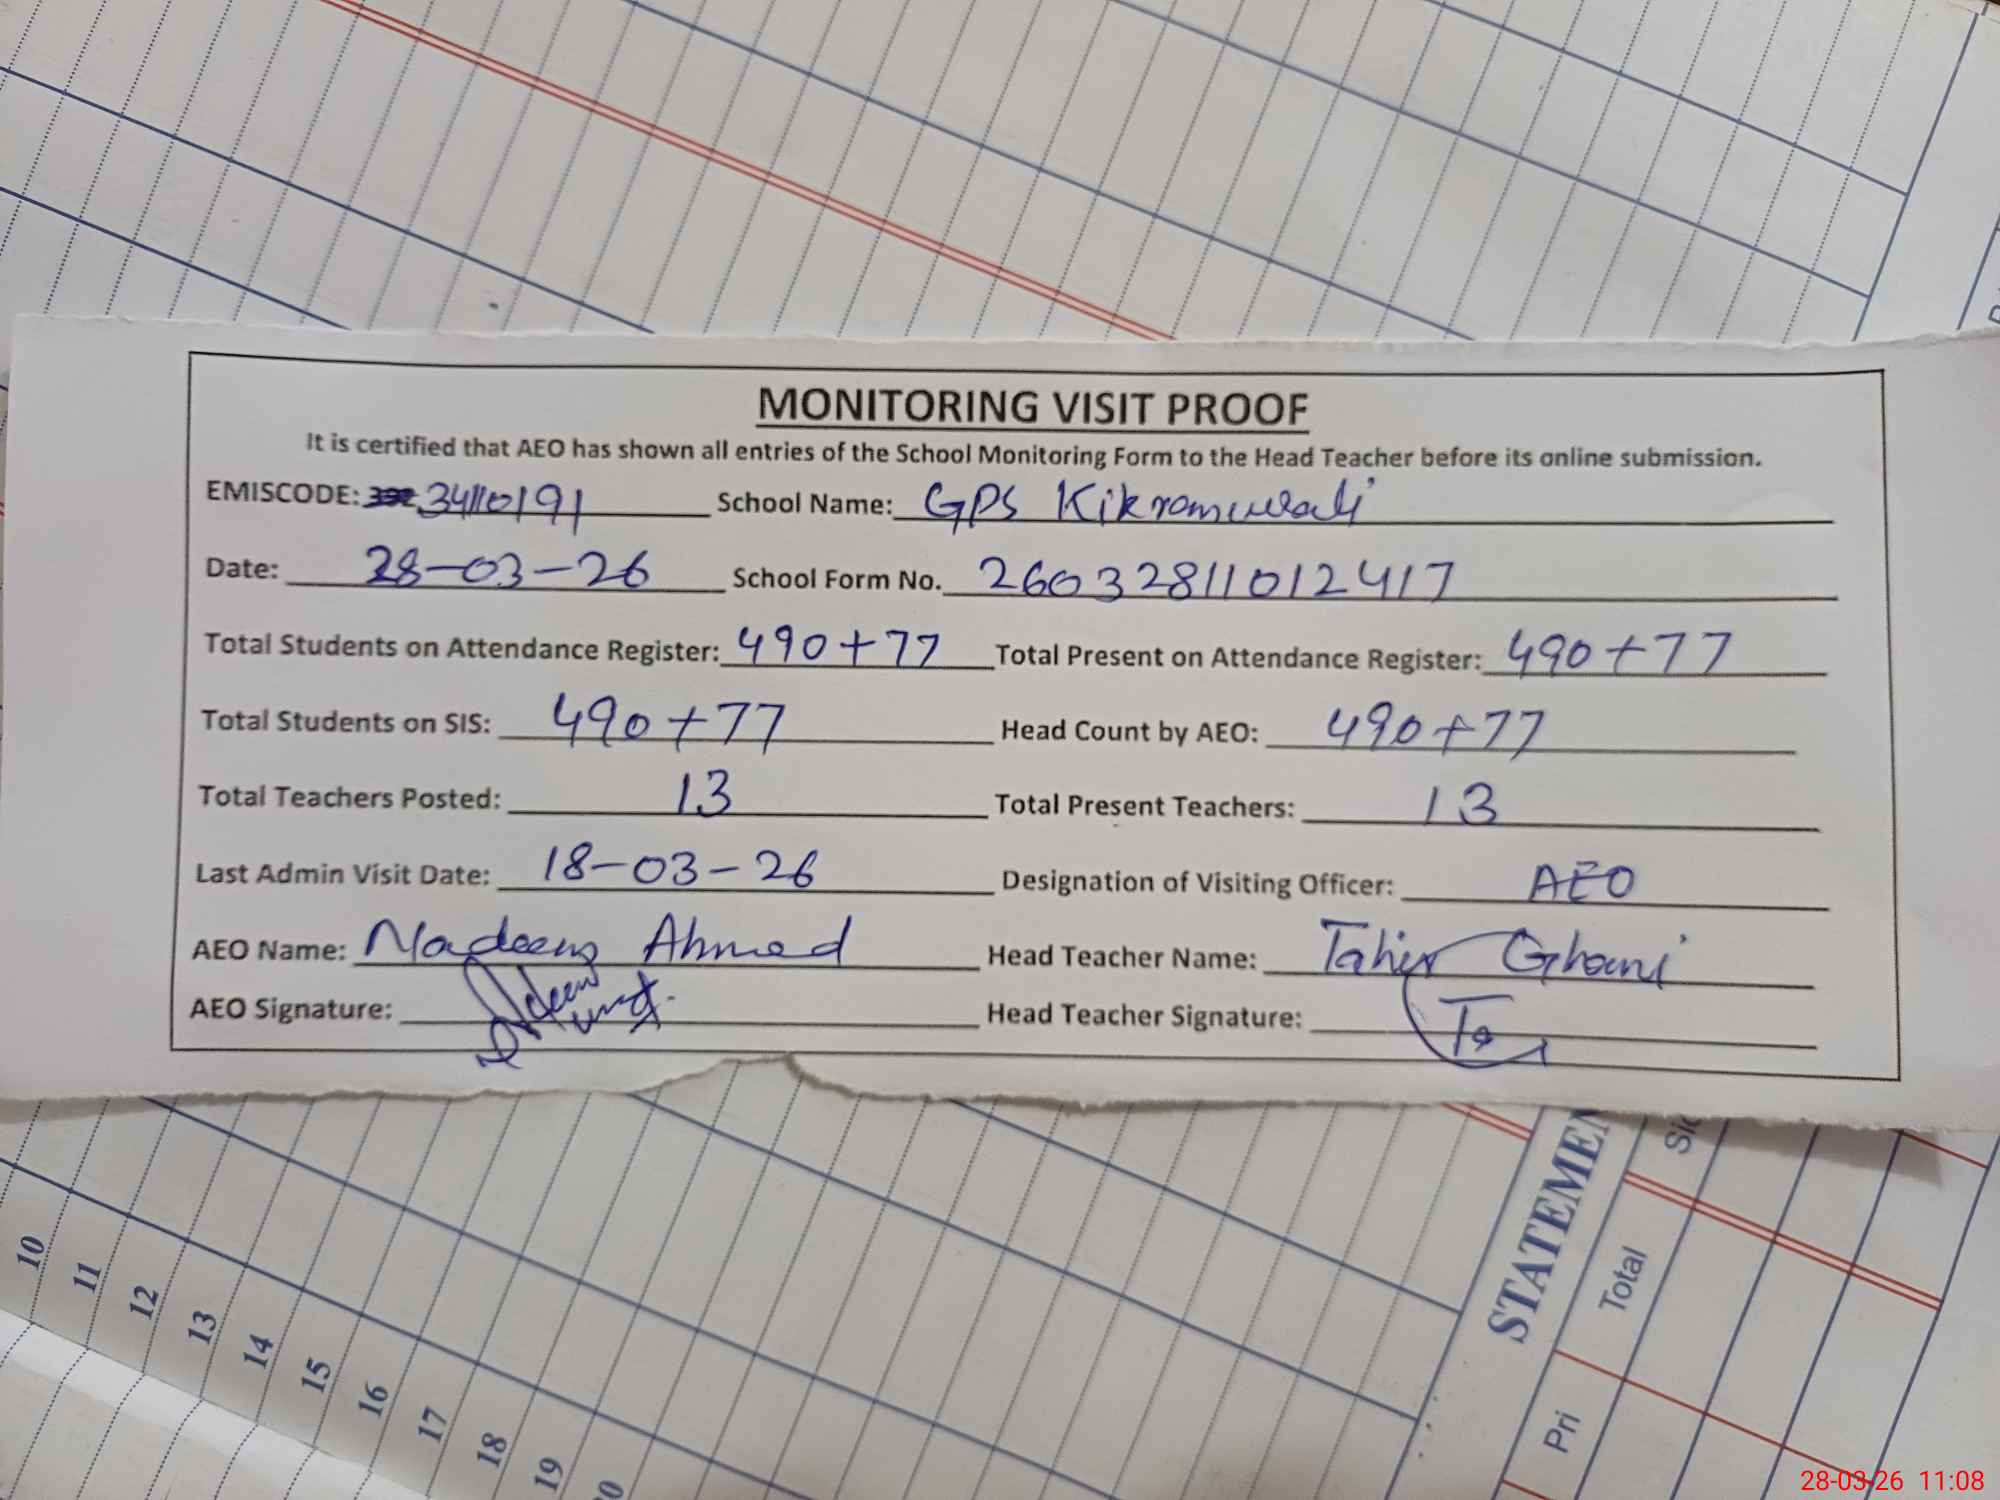 MONITORING VISIT PROOF
It is certified that AEO has shown all entries of the School Monitoring Form to the Head Teacher before its online submission.
EMISCODE: 34110191 School Name: GPS Kikramwali
Date: 28-03-26 School Form No. 26032811012417
Total Students on Attendance Register: 490+77 Total Present on Attendance Register: 490+77
Total Students on SIS: 490+77 Head Count by AEO: 490+77
Total Teachers Posted: 13 Total Present Teachers: 13
Last Admin Visit Date: 18-03-26 Designation of Visiting Officer: AEO
AEO Name: Nadeem Ahmed Head Teacher Name: Tahir Ghani
AEO Signature: Head Teacher Signature:
STATEMEN
Total
Pri
10
11
12
13
14
15
16
17
18
19
28-03-26 11:08